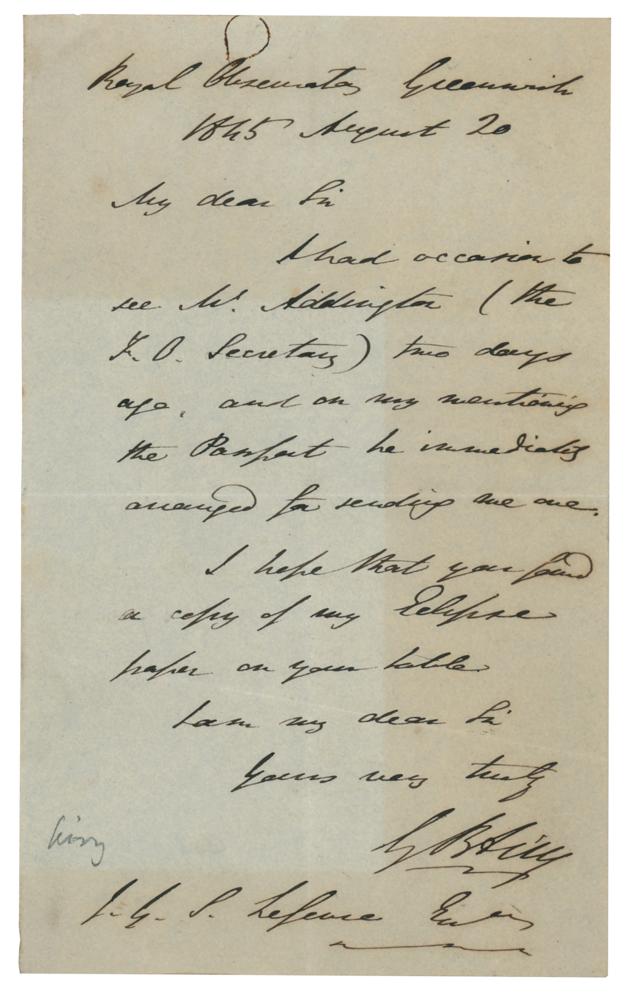 Royal Observatory Greenwich
1845 August 20
My dear Sir
I had occasion to
see Mr. Addington (the
F. O. Secretary) two days
ago, and on my mentioning
the Passport he immediately
arranged for sending me one.
I hope that you found
a copy of my Eclipse
paper on your table
I am my dear Sir
Yours very truly
G B Airy
Airy
J. G. S. Lefevre Esq